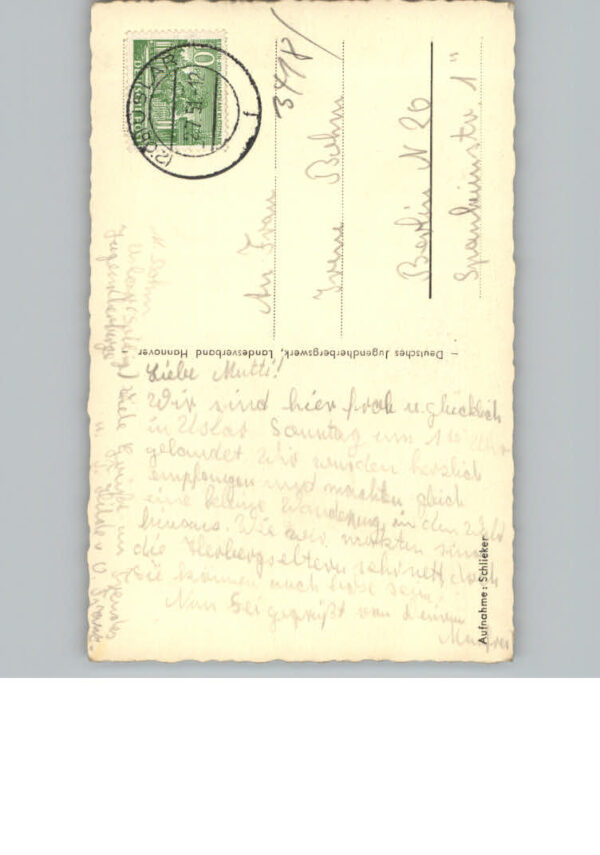 Liebe Mutti!
Wir sind hier froh u. glücklich
in Uslar Sonntag um 1 Uhr
gelandet Wir wurden herzlich
empfangen und machten gleich
eine kleine Wanderung in den Wald
hinaus. Wie wir merkten sind
die Herbergseltern sehr nett doch
sie können auch böse sein.
Nun sei gegrüßt von deinem
Manfred
Viele Grüße an
Jugendherberge
An Frau
Irene Buhm
Berlin N 20
Spanheimstr. 1"
3418/
USLAR
10
– Deutsches Jugendherbergswerk, Landesverband Hannover
Aufnahme: Schlieker